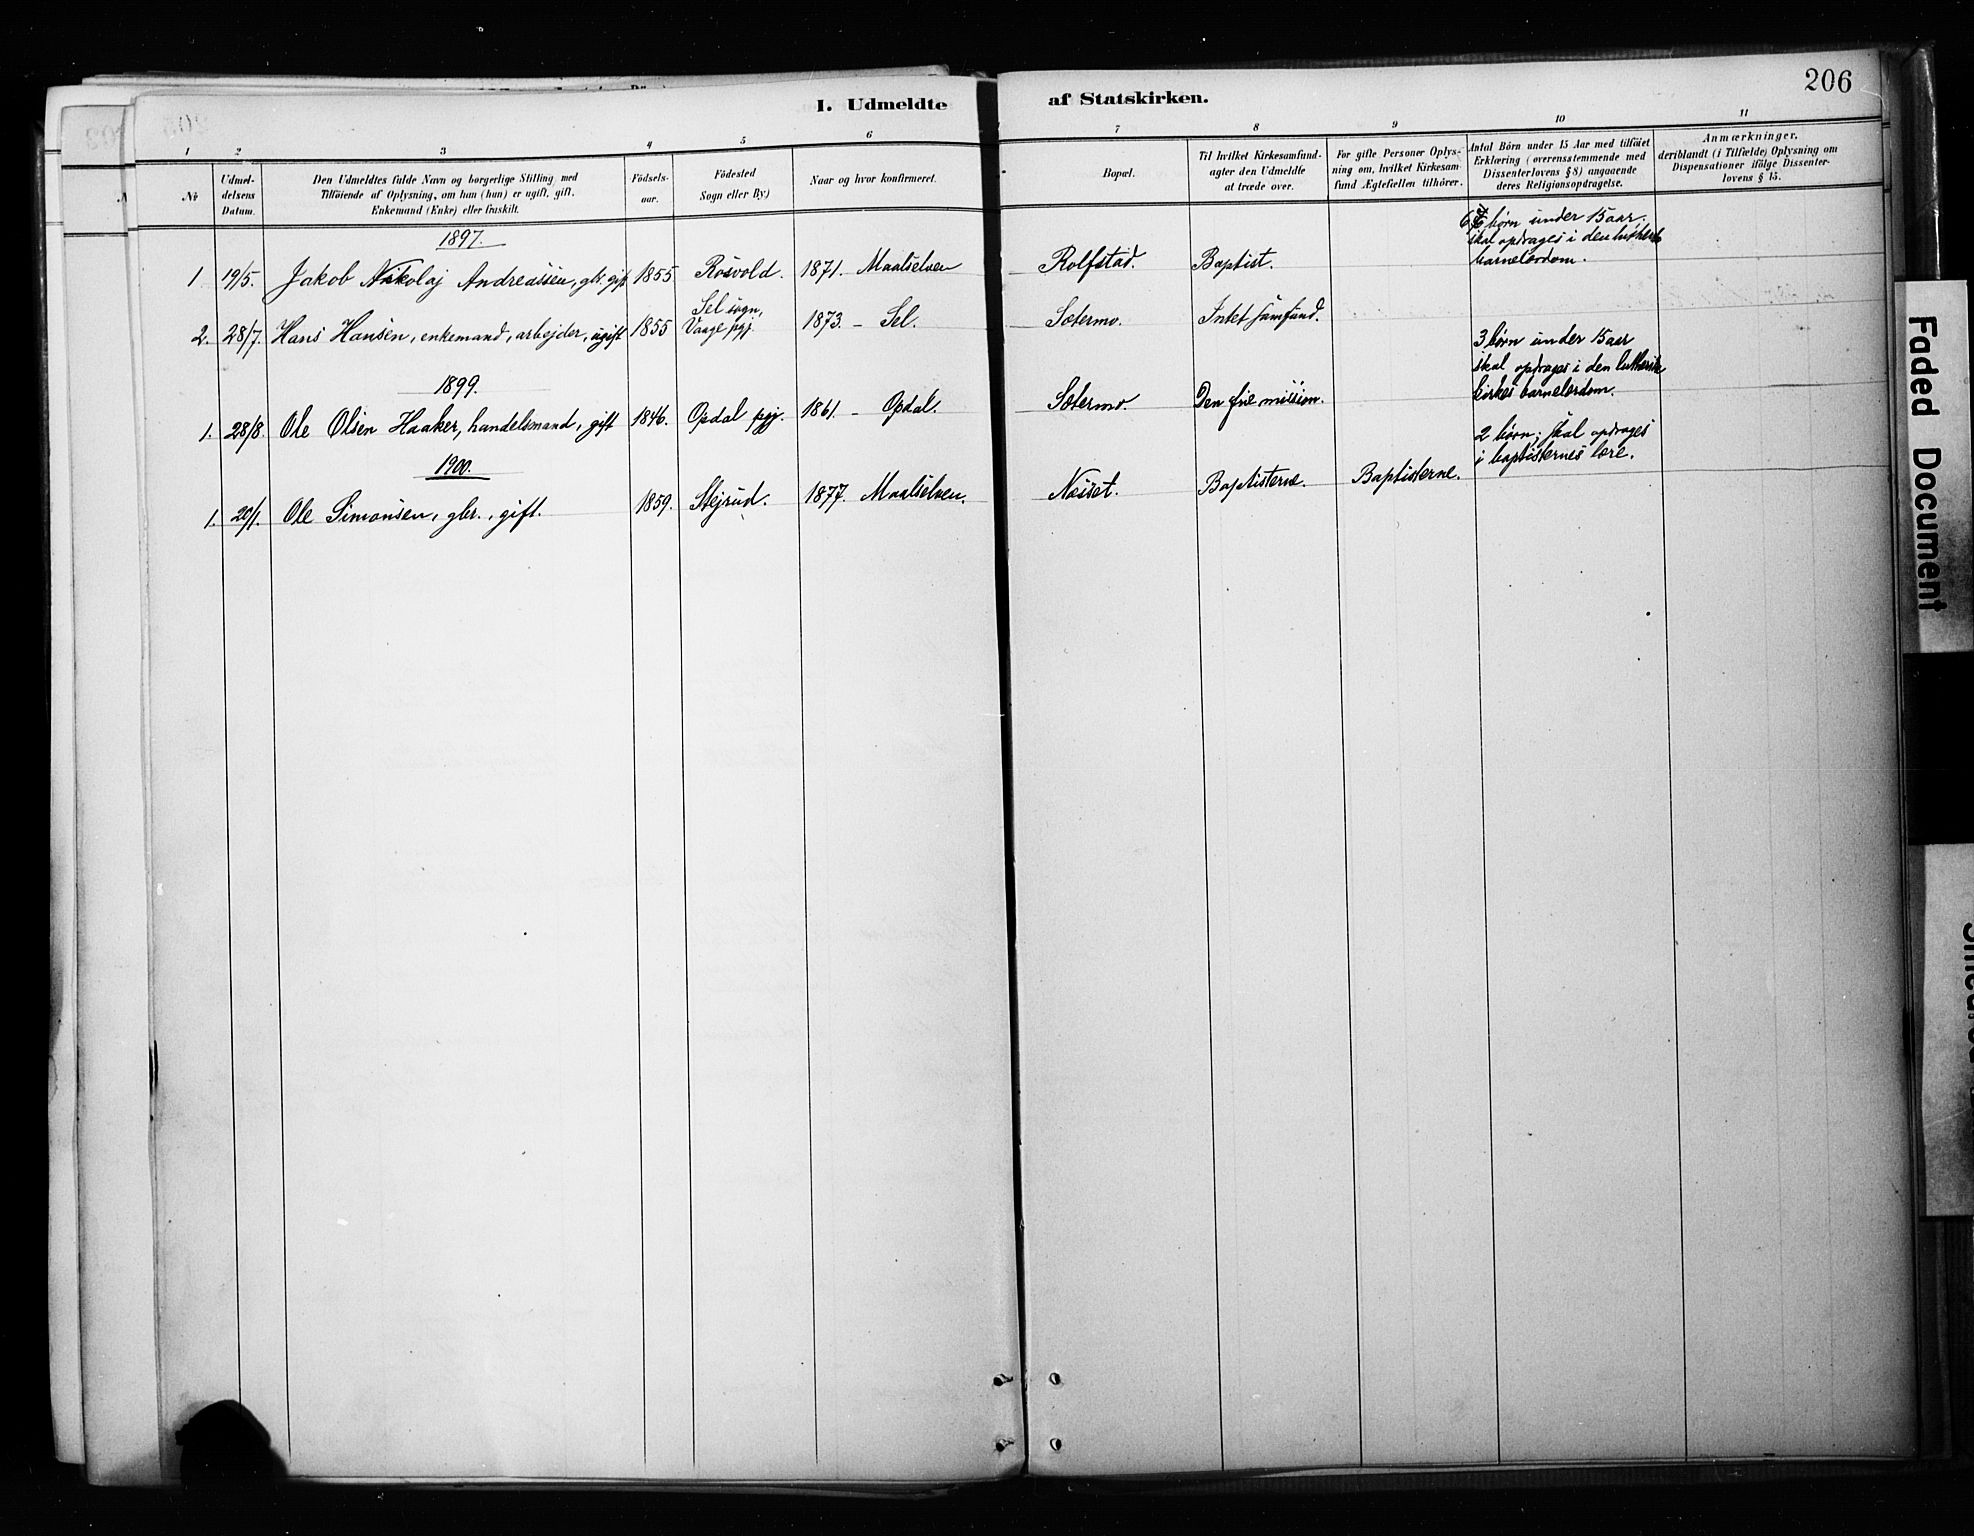 206
I. Udmeldte af Statskirken.
1 2 3 4 5 6 7 8 9 10 11
No
Udmel-
delsens
Datum.
Den Udmeldtes fulde Navn og borgerlige Stilling, med
Tilföiende af Oplysning, om han (hun) er ugift, gift,
Enkemand (Enke) eller fraskilt.
Födsels-
aar.
Födested
Sogn eller By)
Naar og hvor konfirmeret.
Bopæl.
Til hvilket Kirkesamfund-
agter den Udmeldte
at træde over.
For gifte Personer Oplys-
ning om, hvilket Kirkesam-
fund Ægtefællen tilhörer.
Antal Börn under 15 Aar med tilföiet
Erklæring (overensstemmende med
Dissenterlovens § 8) angaaende
deres Religionsopdragelse.
Anmærkninger,
deriblandt (i Tilfælde) Oplysning om
Dispensationer ifölge Dissenter-
lovens § 15.
1897.
1 19/5. Jakob Nikolaj Andreassen, gbr. gift 1855 Rosvold. 1871. Maalselven Rolfstad. Baptist.
6 børn under 15 aar.
skal opdrages i den
barnelærdom.
2. 28/7. Hans Hansen, enkemand, arbejder, ugift 1855 Sel sogn,
Vaage pgj. 1873. – Sel. Sætermo. Intet samfund.
1899.
1. 28/8. Ole Olsen Haaker, handelsmand, gift 1846. Opdal pgj. 1861. – Opdal. Sætermo. Den frie mission.
3 børn under 15 aar
skal opdrages i den lutherske
kirkes barnelærdom.
1900.
1. 20/1. Ole Simonsen, gbr., gift. 1859. Stejrud. 1877. Maalselven. Næsset. Baptisterne. Baptisterne.
2 børn; skal opdrages
i baptisternes lære.
Faded Document